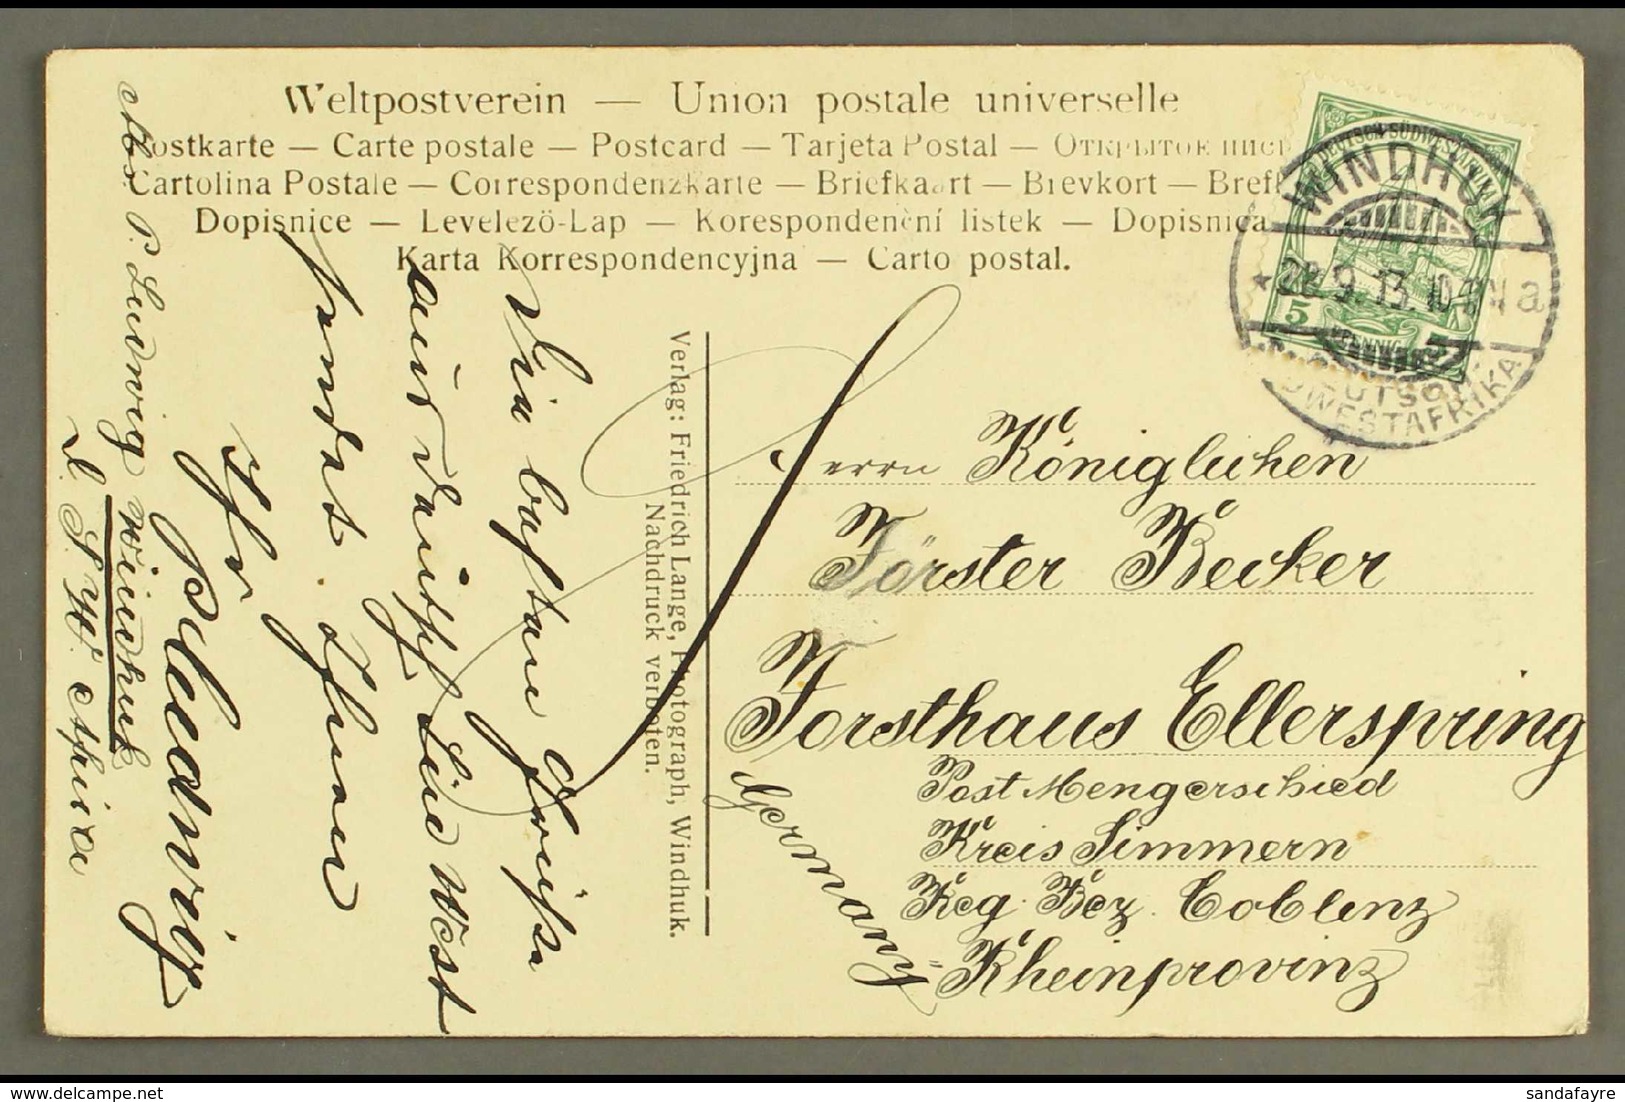 Weltpostverein — Union postale universelle
Postkarte — Carte postale — Postcard — Tarjeta Postal — Открытое пись
Cartolina Postale — Correspondenzkarte — Briefkaart — Brevkort — Brefk
Dopisnice — Levelező-Lap — Korespondenční listek — Dopisnica
Karta Korrespondencyjna — Carto postal.
DEUTSCH-SÜDWESTAFRIKA
5 PFENNIG 5
WINDHUK
* 9.13. 10 a
DEUTSCH-
SÜDWESTAFRIKA
Verlag: Friedrich Lange, Photograph, Windhuk.
Nachdruck verboten.
Die besten Grüße
aus Deutsch Süd West
sendet Ihnen
Ihr
P. Ludwig
Abs. P. Ludwig Windhuk
D. S. W. Afrika
Herrn Königlichen
Förster Becker
Forsthaus Ellerspring
Post Mengerschied
Kreis Simmern
Reg. Bez. Coblenz
Rheinprovinz
Germany
sandafayre